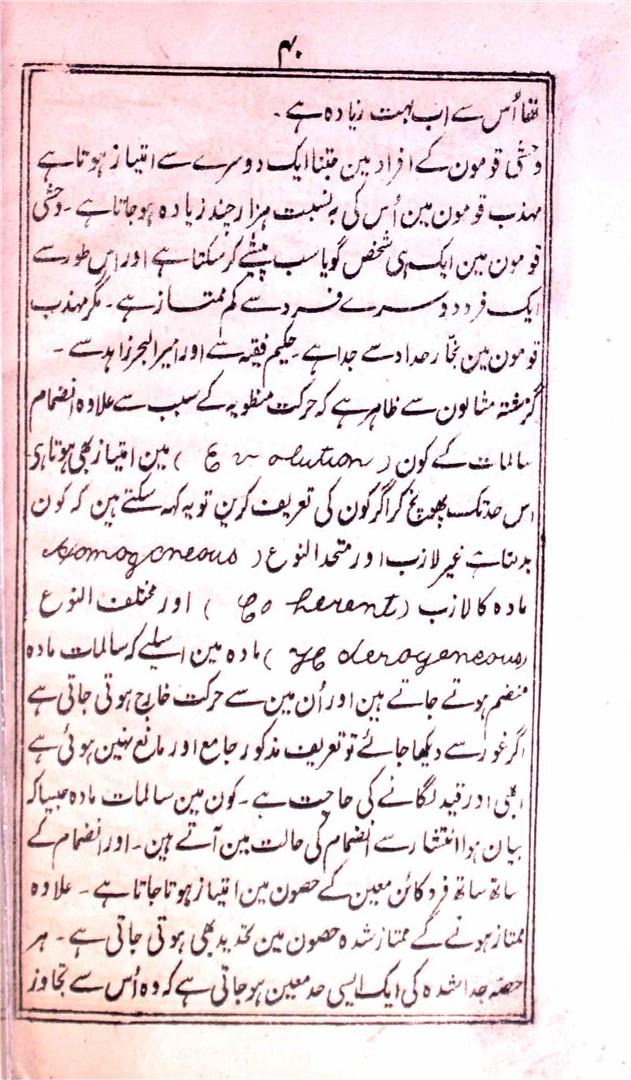 ۴۰
تھا اُس سے اب بہت زیادہ ہے ۔
وحشی قومون کے افراد مین جتنا ایک دوسرے سے امتیاز ہوتا ہے
مہذب قومون مین اُس کی بہ نسبت ہزار چند زیادہ ہو جاتا ہے ۔ وحشی
قومون مین ایک ہی شخص گویا سب پیشے کر سکتا ہے اور اس طور سے
ایک فرد دوسرے فرد سے کم ممتاز ہے ۔ مگر مہذب
قومون مین نجّار حداد سے جدا ہے ۔ حکیم فقیہ سے اور امیر البحر زاہد سے ۔
گزشتہ مثالون سے ظاہر ہے کہ حرکت منطویہ کے سبب سے علاوہ انضمام
سالمات کے کون ( Evolution ) مین امتیاز بھی ہوتا ہی
اس حد تک پہونچ کر اگر کون کی تعریف کرین تو یہ کہہ سکتے ہین کہ کون
بدلنا ہے غیر لازب اور متحد النوع ( Homogeneous
مادہ کا لازب ( Coherent ) اور مختلف النوع
( Heterogeneous ) مادہ مین اسلیے کہ سالمات مادہ
منضم ہوتے جاتے ہین اور اُن مین سے حرکت خارج ہوتی جاتی ہے
اگر غور سے دیکھا جائے تو تعریف مذکور جامع اور مانع نہین ہوئی ہے
ابھی اور قید لگانے کی حاجت ہے ۔ کون مین سالمات مادہ جیسا کہ
بیان ہوا انتشار سے انضمام کی حالت مین آتے ہین ۔ اور انضمام کے
ساتھ ساتھ فرد کائن معین کے حصون مین امتیاز ہوتا جاتا ہے ۔ علاوہ
ممتاز ہونے کے ممتاز شدہ حصون مین تحدید بھی ہوتی جاتی ہے ۔ ہر
حصّہ جدا شدہ کی ایک ایسی حد معین ہو جاتی ہے کہ وہ اُس سے تجاوز